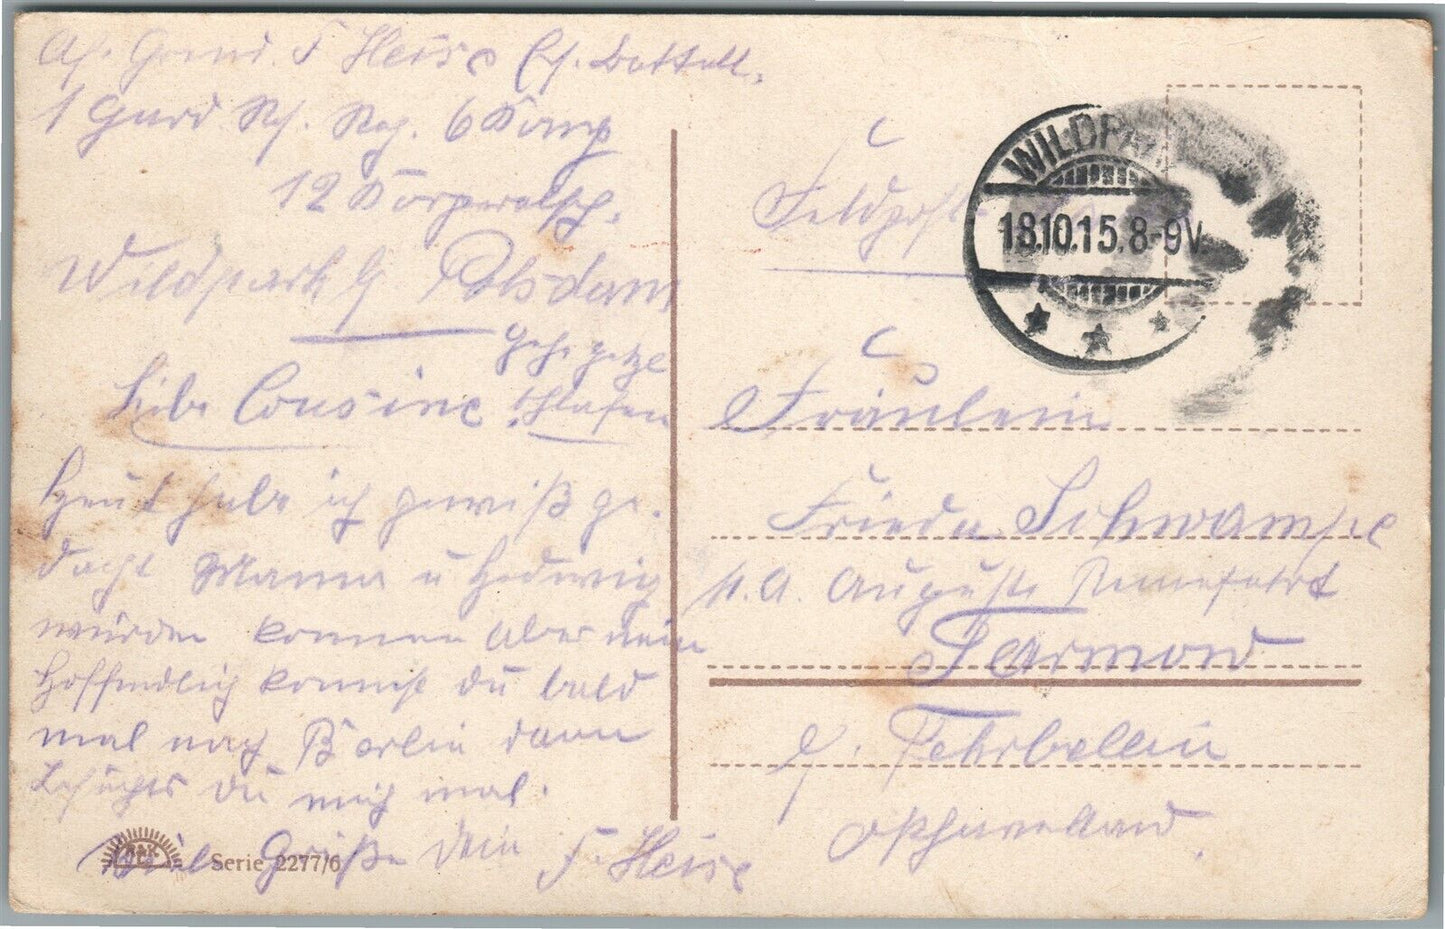 Abs. Gren. F Heise Ers. Battall.
1 Gard Rs. Reg. 6 Komp
12 Korperalsch.
Wildpark b/ Potsdam
Gehe jetzt
schlafen
Liebe Cousine!
Heut habe ich gewiß ge-
dacht Mama u Hedwig
würden kommen aber nein
Hoffendlich kommst du bald
mal nach Berlin dann
besuchst du mich mal.
Viele Grüße dein F. Heise
Serie 2277/6
WILDPARK
18.10.15.8-9V.
Feldpost
Fräulein
Frieda Schwampe
Auguste
Tarmow
b. Fehrbellin
Osthavelland.